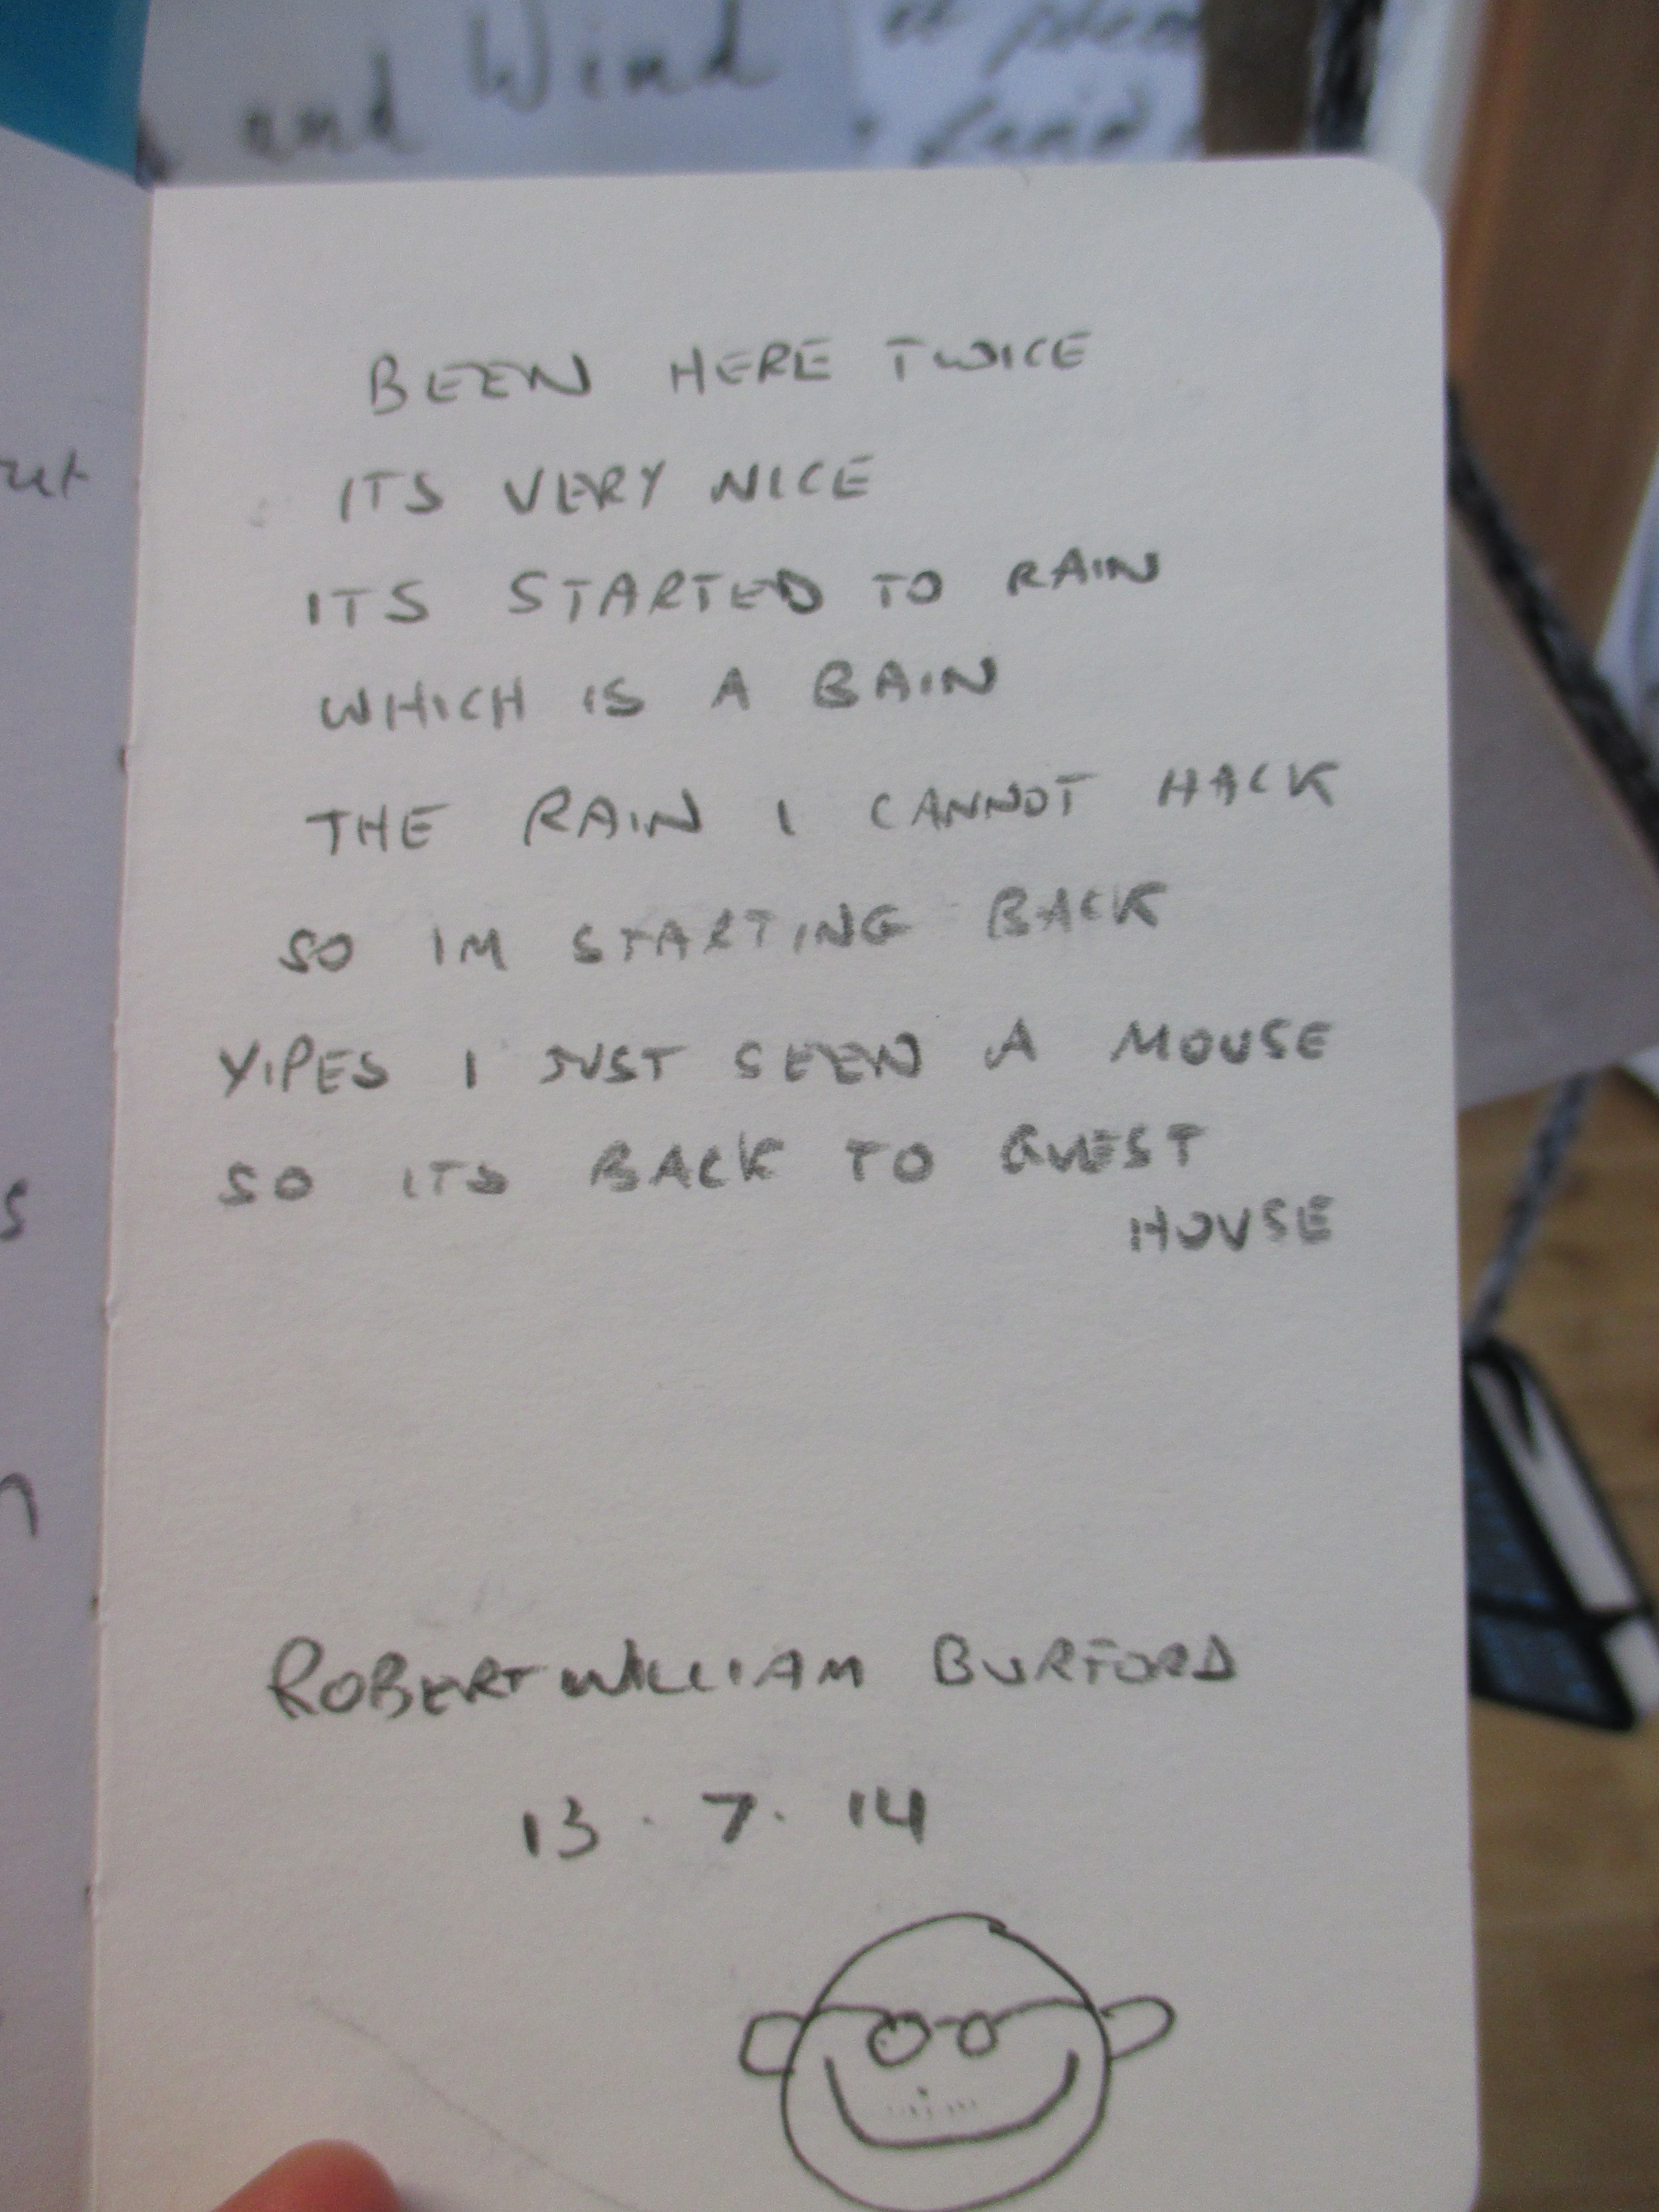 and Wind
BEEN HERE TWICE
ITS VERY NICE
ITS STARTED TO RAIN
WHICH IS A BAIN
THE RAIN I CANNOT HACK
SO IM STARTING BACK
YIPES I JUST SEEN A MOUSE
SO ITS BACK TO GUEST
HOUSE
ROBERT WILLIAM BURFORD
13.7.14